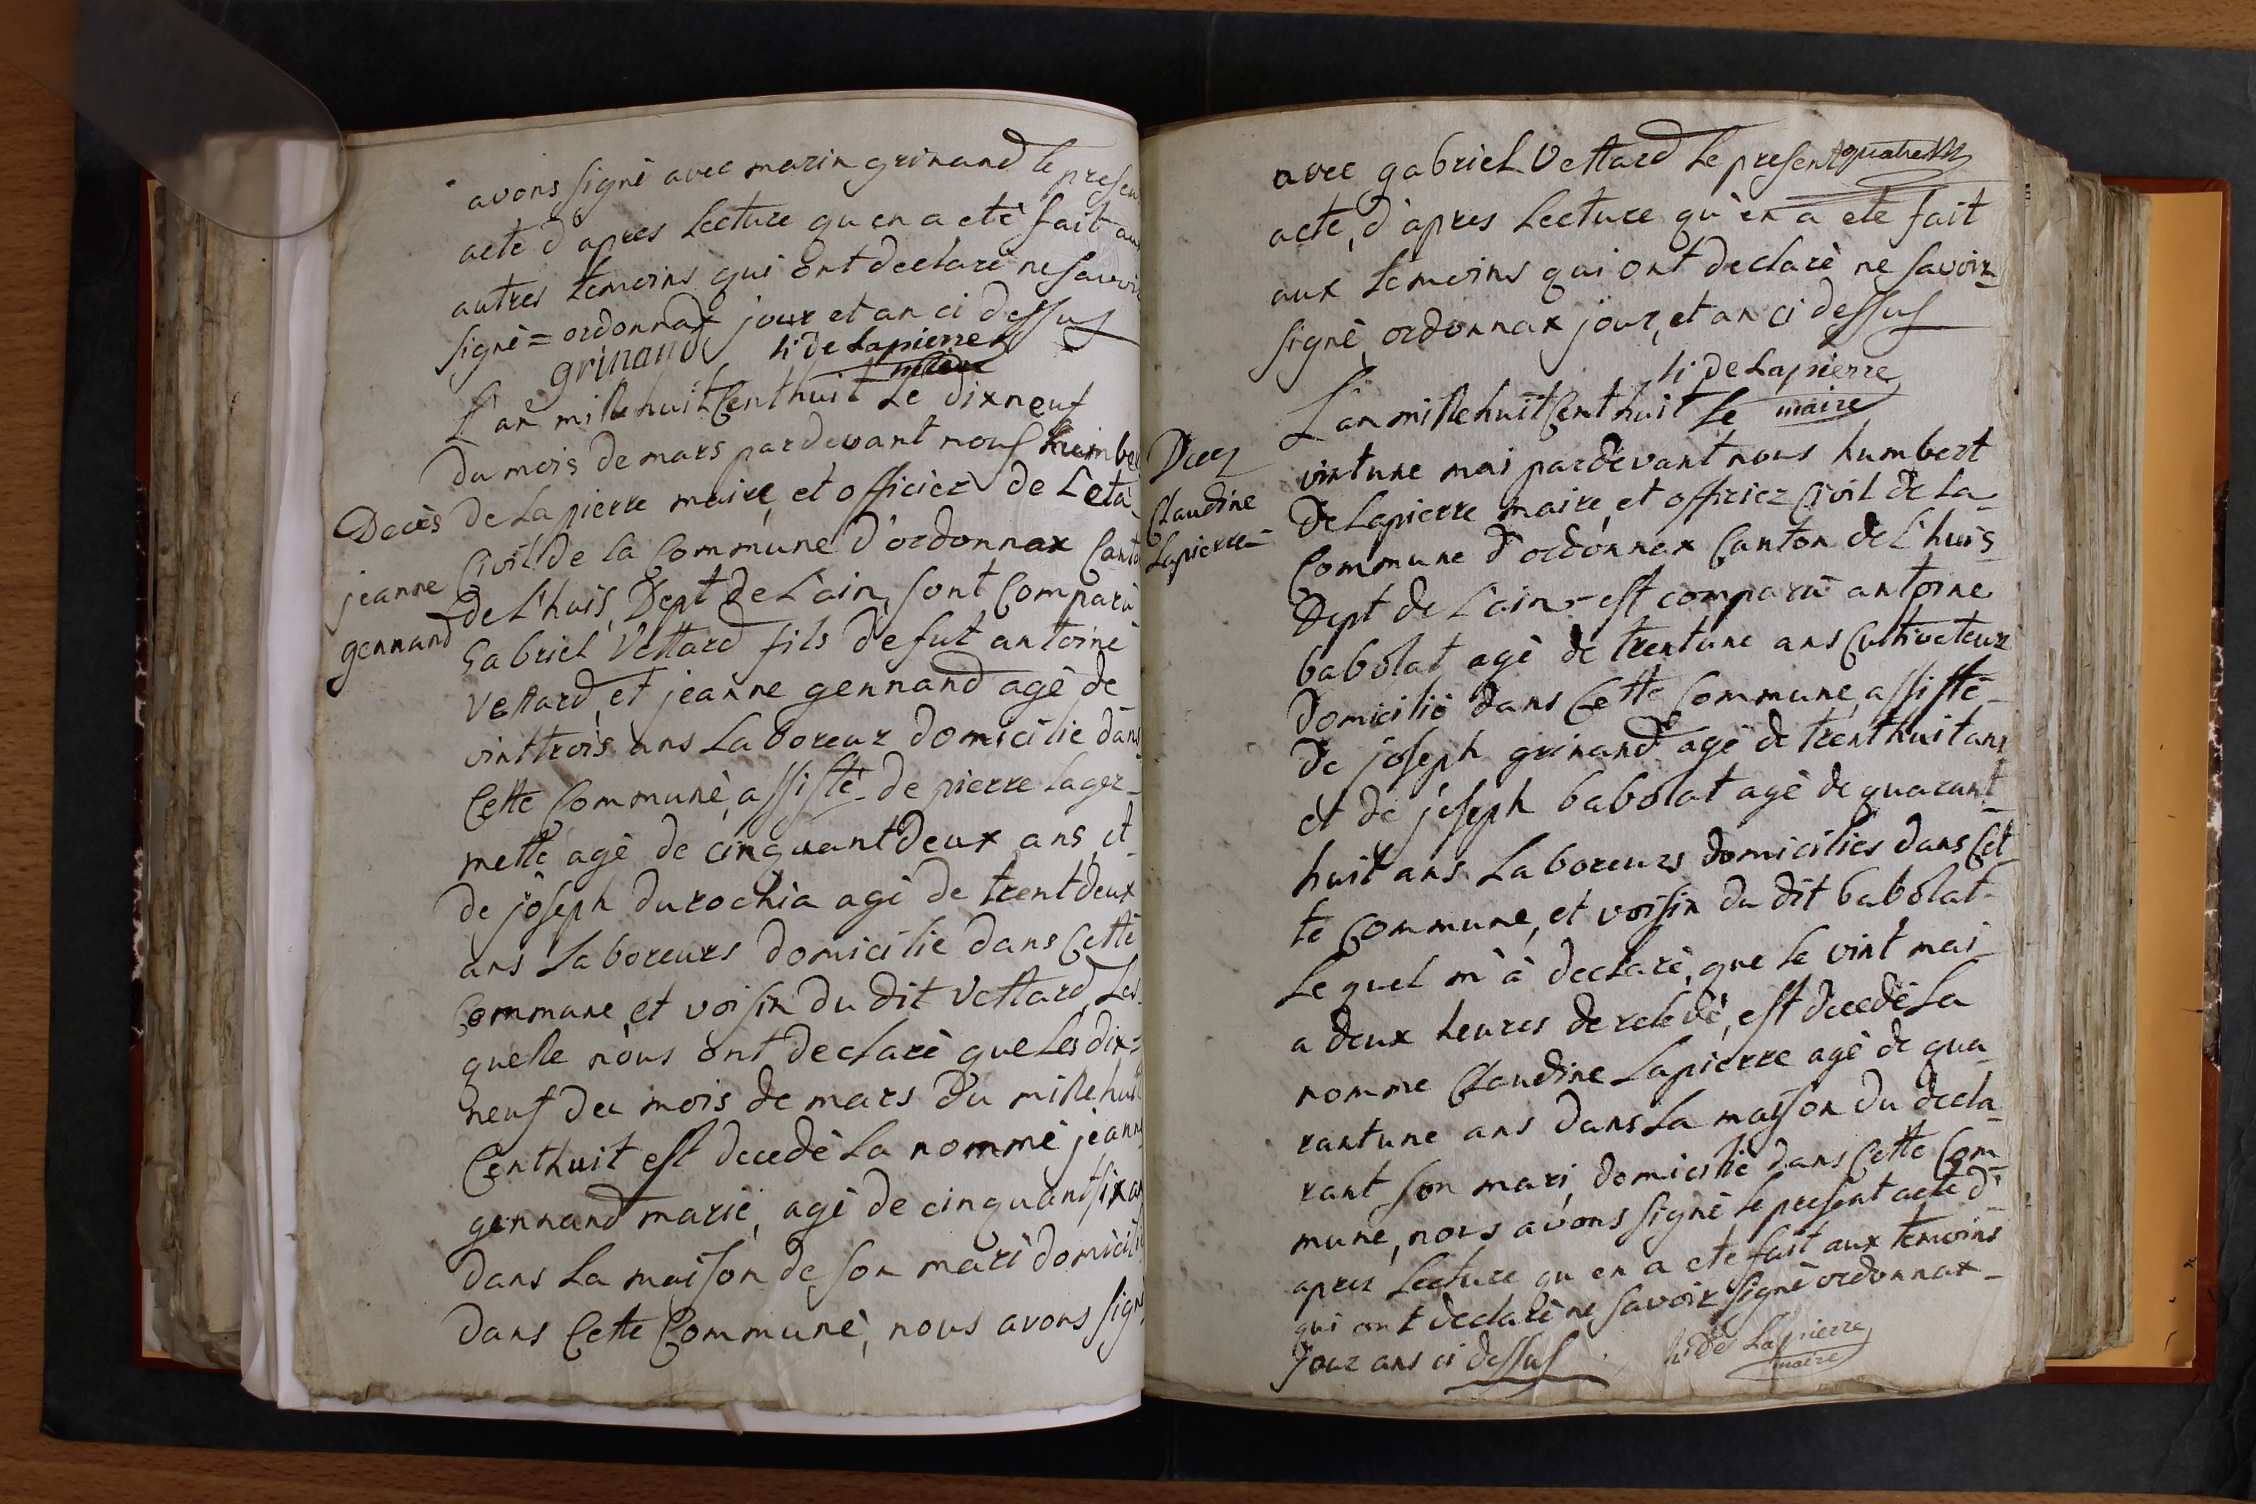 avons signé avec marin grinand le presen
acte d'apres Lecture qu en a eté fait aux
autres temoins qui ont declaré ne savoir
signé = ordonnax jour et an ci dessus
grinand h: de Lapierre
maire
L'an mille huit Cent huit Le dixneuf
du mois de mars pardevant nous humber
de Lapierre maire, et officier de L'eta
Civil de la Commune d'ordonnax Canto
de L'huis, Dept de L'ain, sont Comparu
Gabriel Vettard fils de fut antoine
Vettard, et jeanne gennand agé de
vinttrois ans Laboreur domicilie dans
Cette Commune, assisté de pierre lager-
mette agé de cinquantdeux ans, et
de joseph durochia agé de trentdeux
ans Laboreurs domicilie dans Cette
Commune et voisin du dit Vettard, Les-
quelle nous ont declaré que Les dix=
neuf du mois de mars du mille huit
Centhuit est decedé La nommé jeanne
gennand marie, agé de cinquantsix an
dans La maison de son mari domicilié
dans Cette Commune, nous avons signé
Decès
jeanne
gennand
avec gabriel Vettard Le present
acte, d'apres Lecture qu'en a eté fait
aux temoins qui ont declaré ne savoir
signé ordonnax jour, et an ci dessus
h: de Lapierre
maire
L'an mille huit Cent huit Le
vintune mai pardevant nous humbert
de Lapierre maire, et officier Civil de La
Commune d'ordonnax Canton de L'huis
Dept de L'ain - est comparu antoine
babolat agé de trentune ans Cultivateur
domicilié dans Cette Commune, assisté
de joseph grinand agé de trenthuit ans
et de joseph babolat agé de quarant-
huit ans Laboreurs domiciliés dans Cet
te Commune, et voisin du dit babolat-
Le quel m'à declaré, que le vint mai
a deux heures de relevé, est decedé La
nomme Claudine Lapierre agé de qua
rantune ans dans La maison du decla
rant son mari, domicilié dans Cette Com
mune, nous avons signé Le present acte d'
apres Lecture qu en a eté fait aux temoins
qui ont declaré ne savoir signé ordonnax-
jour ans ci dessus h: de Lapierre
maire
Decez
Claudine
Lapierre